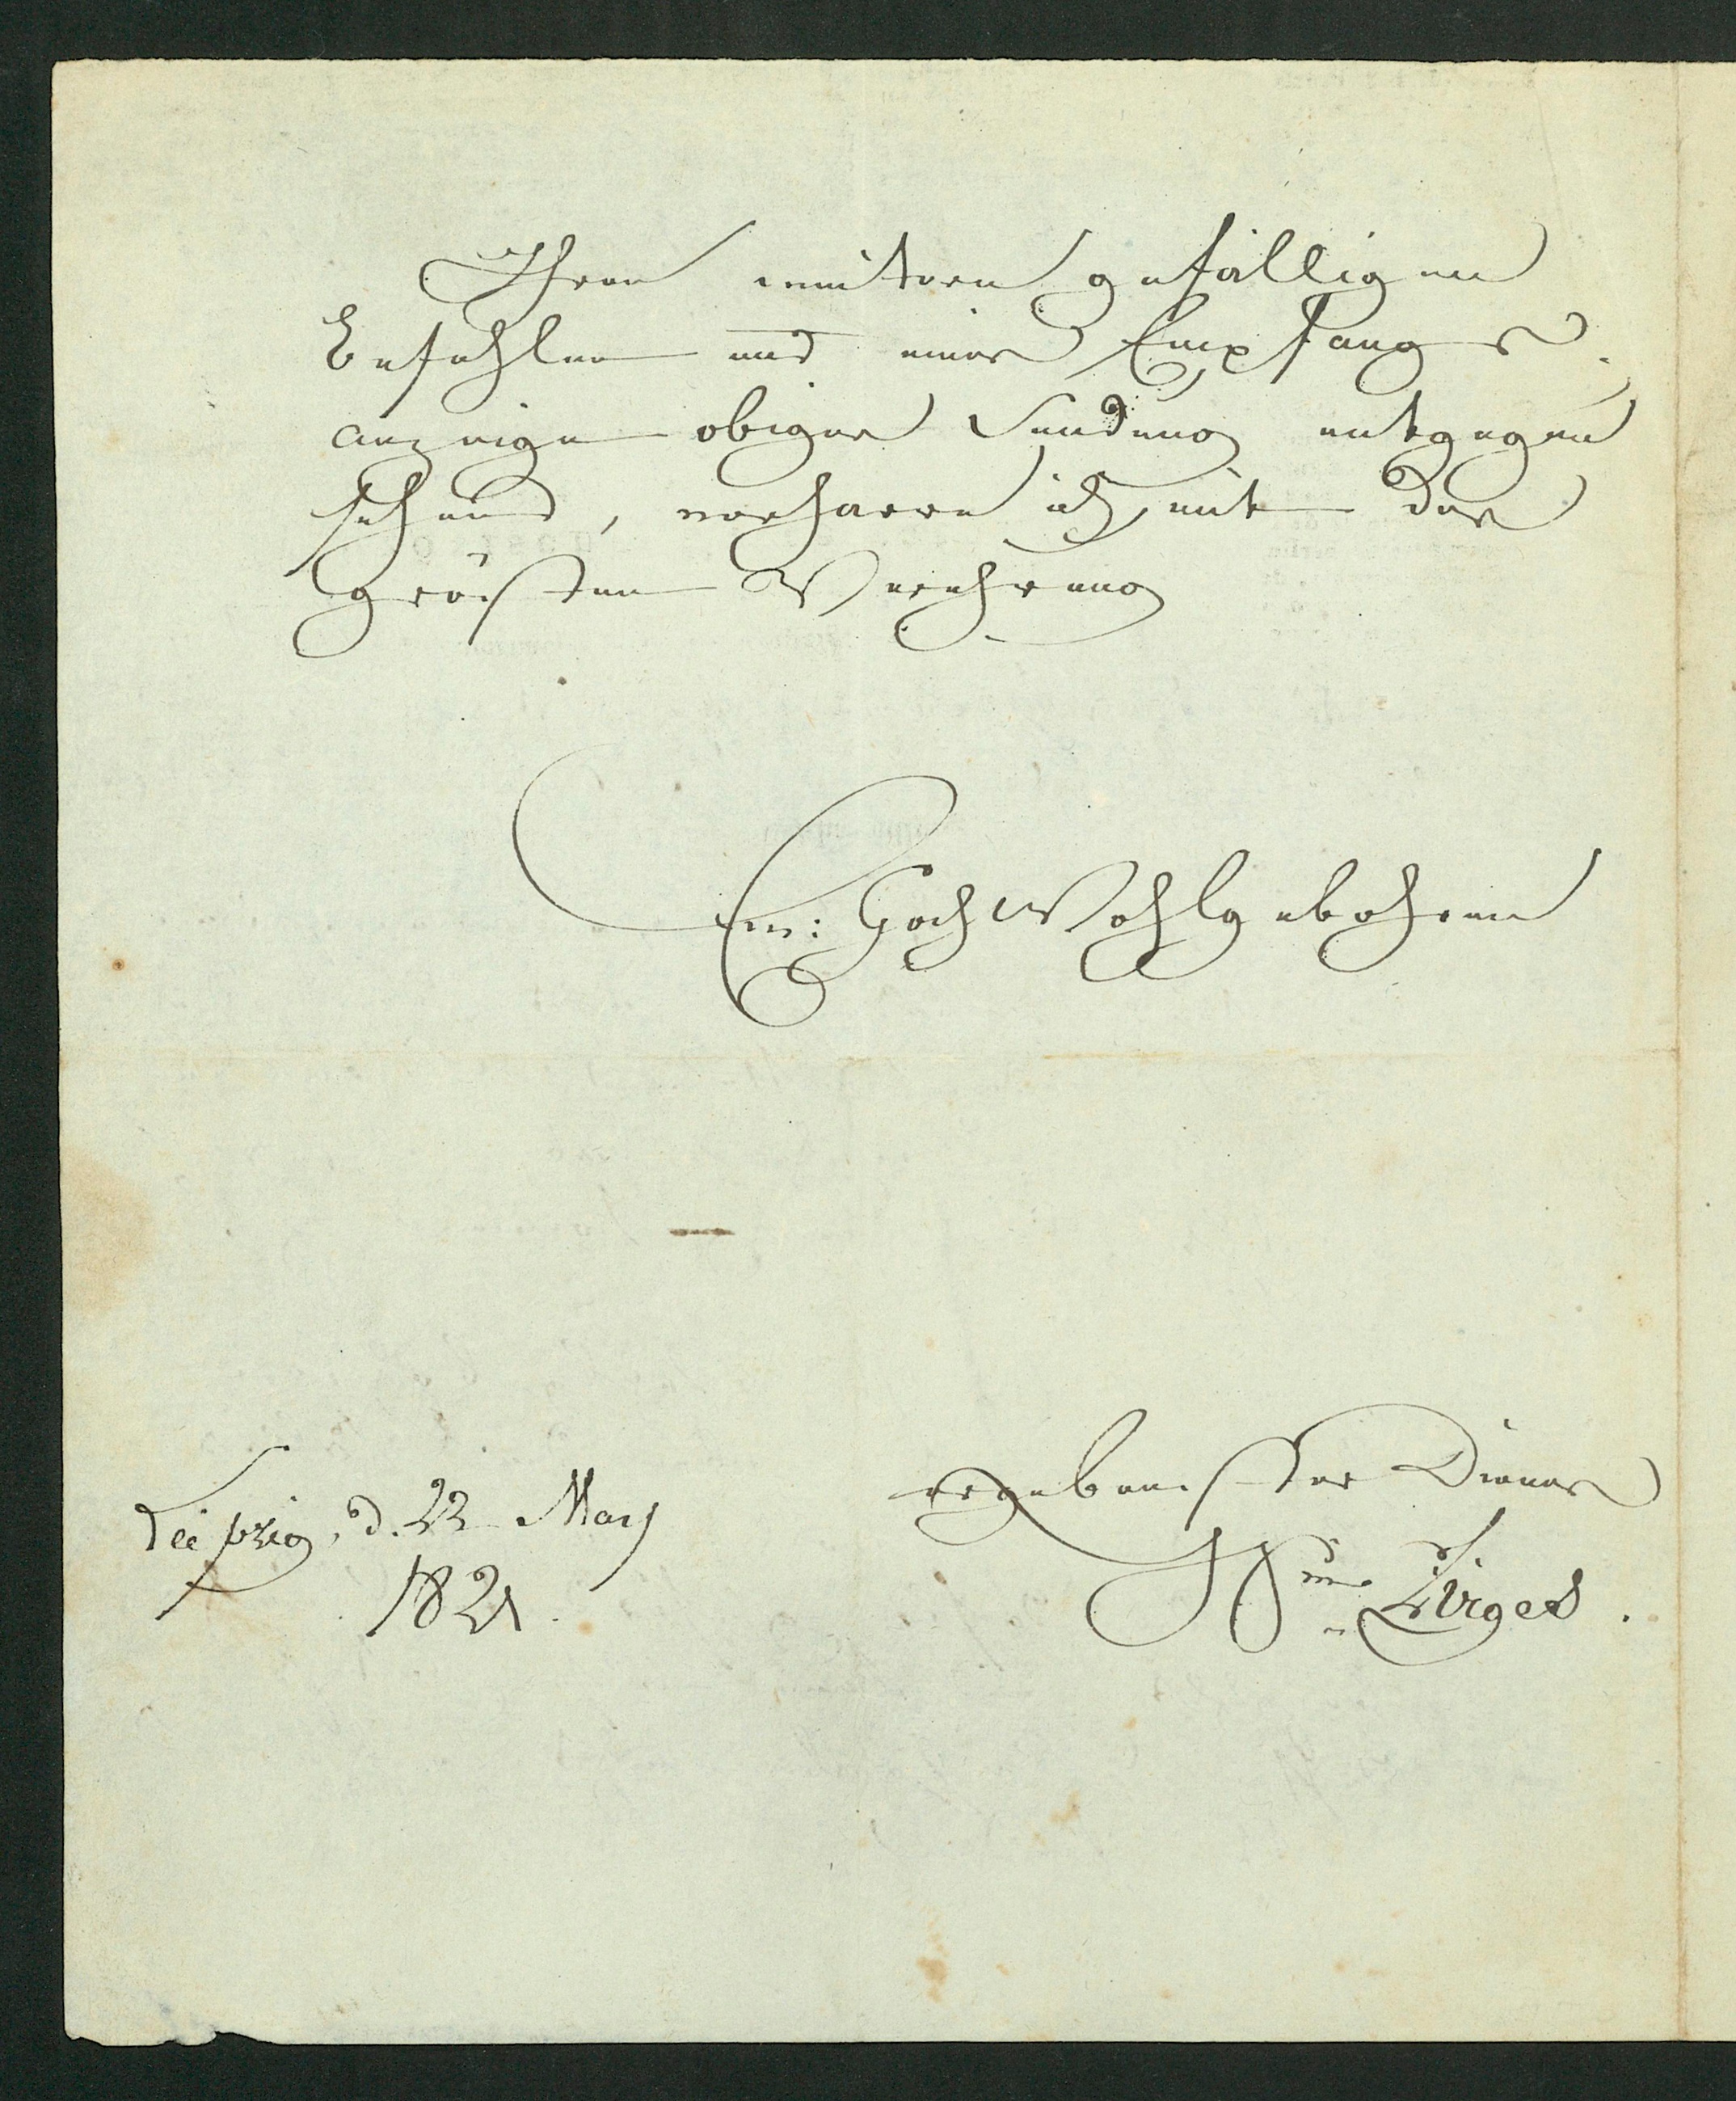 Ihren weitern gefälligen
Befehlen und einer Empfangs-
anzeige obiger Sendung entgegen
sehend, verharre ich, mit der
größten Verehrung
Ew: HochWohlgebohren
ergebenster Diener
Leipzig, d. 22 May
1821.
Zirges.